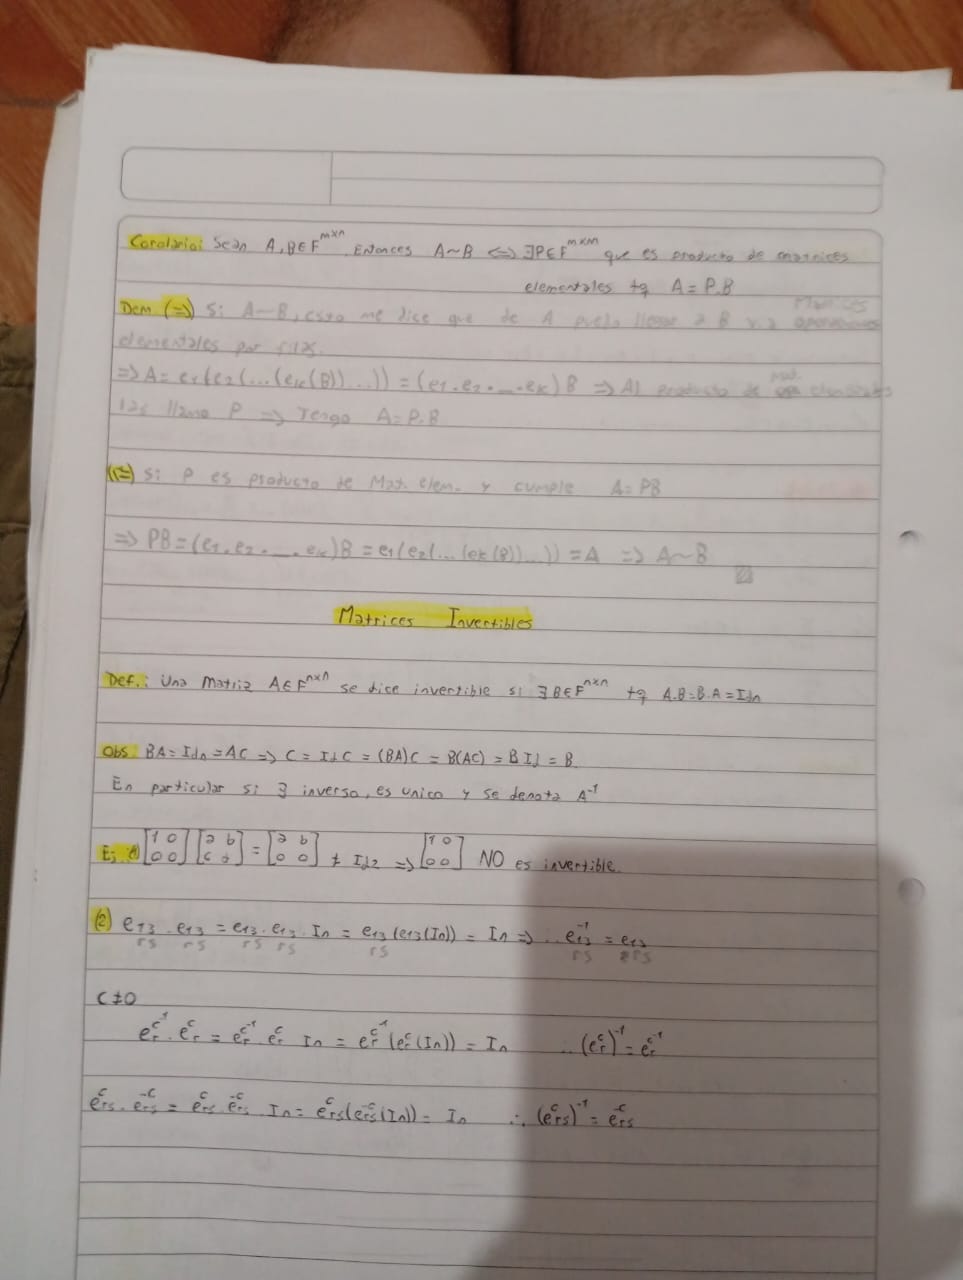 Corolario: Sean A, B ∈ F^{m×n}. Entonces A ~ B <=> ∃ P ∈ F^{m×m} que es producto de matrices
elementales tq A = P.B
Dem (=>) Si A ~ B, esto me dice que de A puedo llegar a B vía operaciones
elementales por filas.
=> A = e1(e2(...(ek(B))...)) = (e1.e2. ... .ek) B => Al producto de mat. elementales
las llamo P => Tengo A = P.B
(<=) Si P es producto de Mat. elem. y cumple A = PB
=> PB = (e1.e2. ... .ek)B = e1(e2(...(ek(B))...)) = A => A ~ B
Matrices Invertibles
Def.: Una Matriz A ∈ F^{n×n} se dice invertible si ∃ B ∈ F^{n×n} tq A.B = B.A = Idn
Obs: BA = Idn = AC => C = Id C = (BA)C = B(AC) = B Id = B
En particular si ∃ inverso, es unico y se denota A^{-1}
Ej (1) [1 0; 0 0] [a b; c d] = [a b; 0 0] ≠ Id2 => [1 0; 0 0] NO es invertible.
(2) e13 . e13 = e13 . e13 In = e13 (e13(In)) = In => ∴ e13^{-1} = e13
rs rs rs rs rs rs rs
c ≠ 0
e_r^{c^{-1}} . e_r^c = e_r^{c^{-1}} . e_r^c In = e_r^{c^{-1}} (e_r^c(In)) = In ∴ (e_r^c)^{-1} = e_r^{c^{-1}}
e_rs^c . e_rs^{-c} = e_rs^c e_rs^{-c} In = e_rs^c (e_rs^{-c}(In)) = In ∴ (e_rs^c)^{-1} = e_rs^{-c}